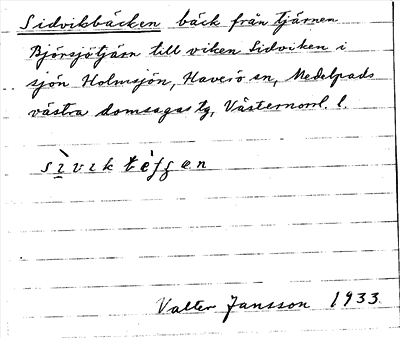 Sidviksbäcken bäck från tjärnen
Björsjötjärn till viken Sidviken i
sjön Holmsjön, Haverö sn, Medelpads
västra domsagas tg, Västernorrl. l.
Valter Jansson 1933